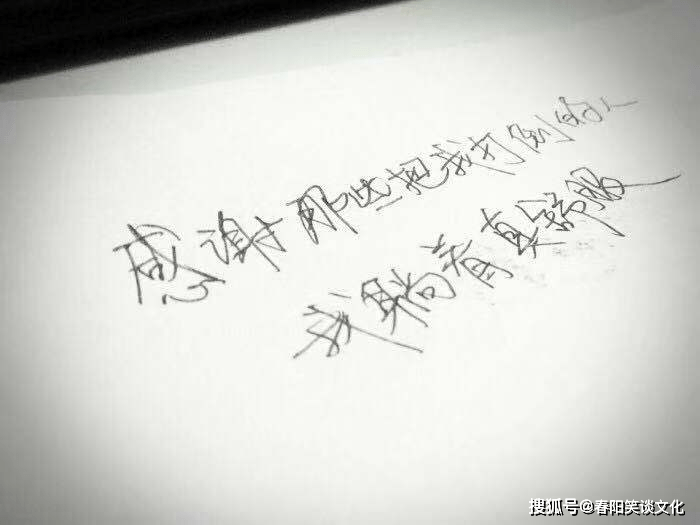 感谢那些把我打倒的人
我躺着真舒服
搜狐号@春阳笑谈文化